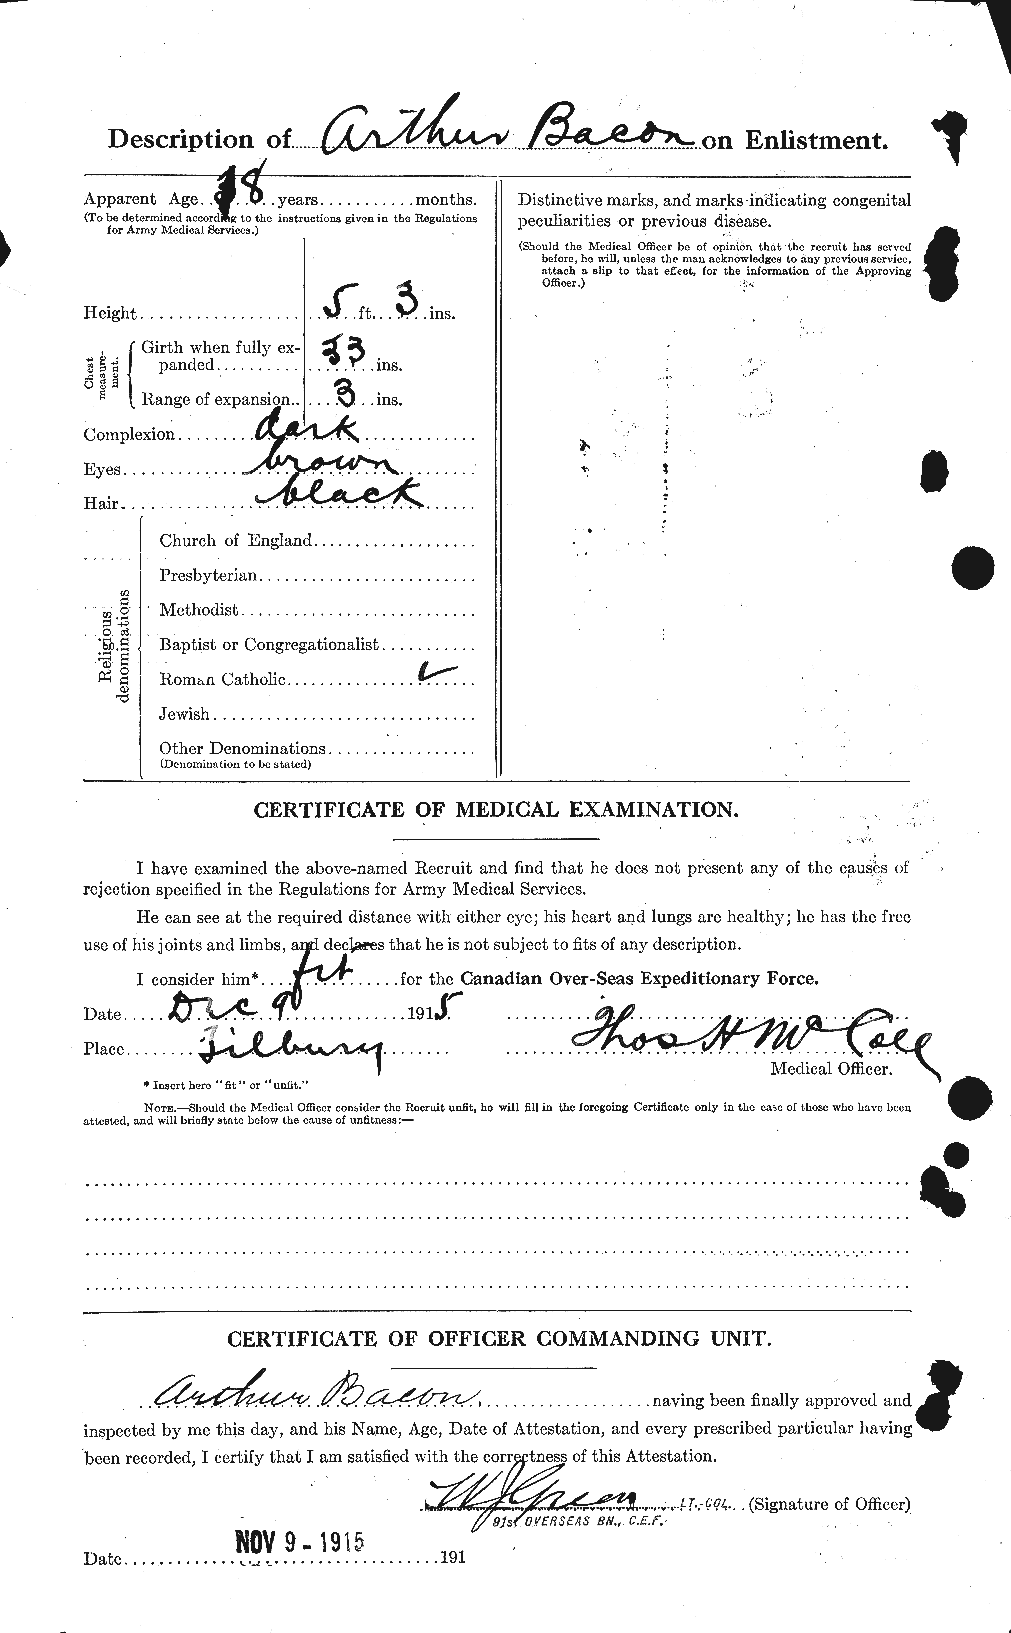 Description of Arthur Bacon on Enlistment.
Apparent Age 18 years months.
(To be determined according to the instructions given in the Regulations
for Army Medical Services.)
Height 5 ft. 3 ins.
Chest measurement.
Girth when fully ex-
panded 33 ins.
Range of expansion 3 ins.
Complexion dark
Eyes brown
Hair black
Religious denominations
Church of England
Presbyterian
Methodist
Baptist or Congregationalist
Roman Catholic ✓
Jewish
Other Denominations
(Denomination to be stated)
Distinctive marks, and marks indicating congenital
peculiarities or previous disease.
(Should the Medical Officer be of opinion that the recruit has served
before, he will, unless the man acknowledges to any previous service,
attach a slip to that effect, for the information of the Approving
Officer.)
CERTIFICATE OF MEDICAL EXAMINATION.
I have examined the above-named Recruit and find that he does not present any of the causes of
rejection specified in the Regulations for Army Medical Services.
He can see at the required distance with either eye; his heart and lungs are healthy; he has the free
use of his joints and limbs, and declares that he is not subject to fits of any description.
I consider him* fit for the Canadian Over-Seas Expeditionary Force.
Date Dec 9 1915
Place Tilbury
Thos H McColl
Medical Officer.
* Insert here "fit" or "unfit."
NOTE.—Should the Medical Officer consider the Recruit unfit, he will fill in the foregoing Certificate only in the case of those who have been
attested, and will briefly state below the cause of unfitness:—
CERTIFICATE OF OFFICER COMMANDING UNIT.
Arthur Bacon having been finally approved and
inspected by me this day, and his Name, Age, Date of Attestation, and every prescribed particular having
been recorded, I certify that I am satisfied with the correctness of this Attestation.
WJGreen LT.-COL. (Signature of Officer)
91st OVERSEAS BN., C.E.F.
NOV 9 - 1915
Date 191